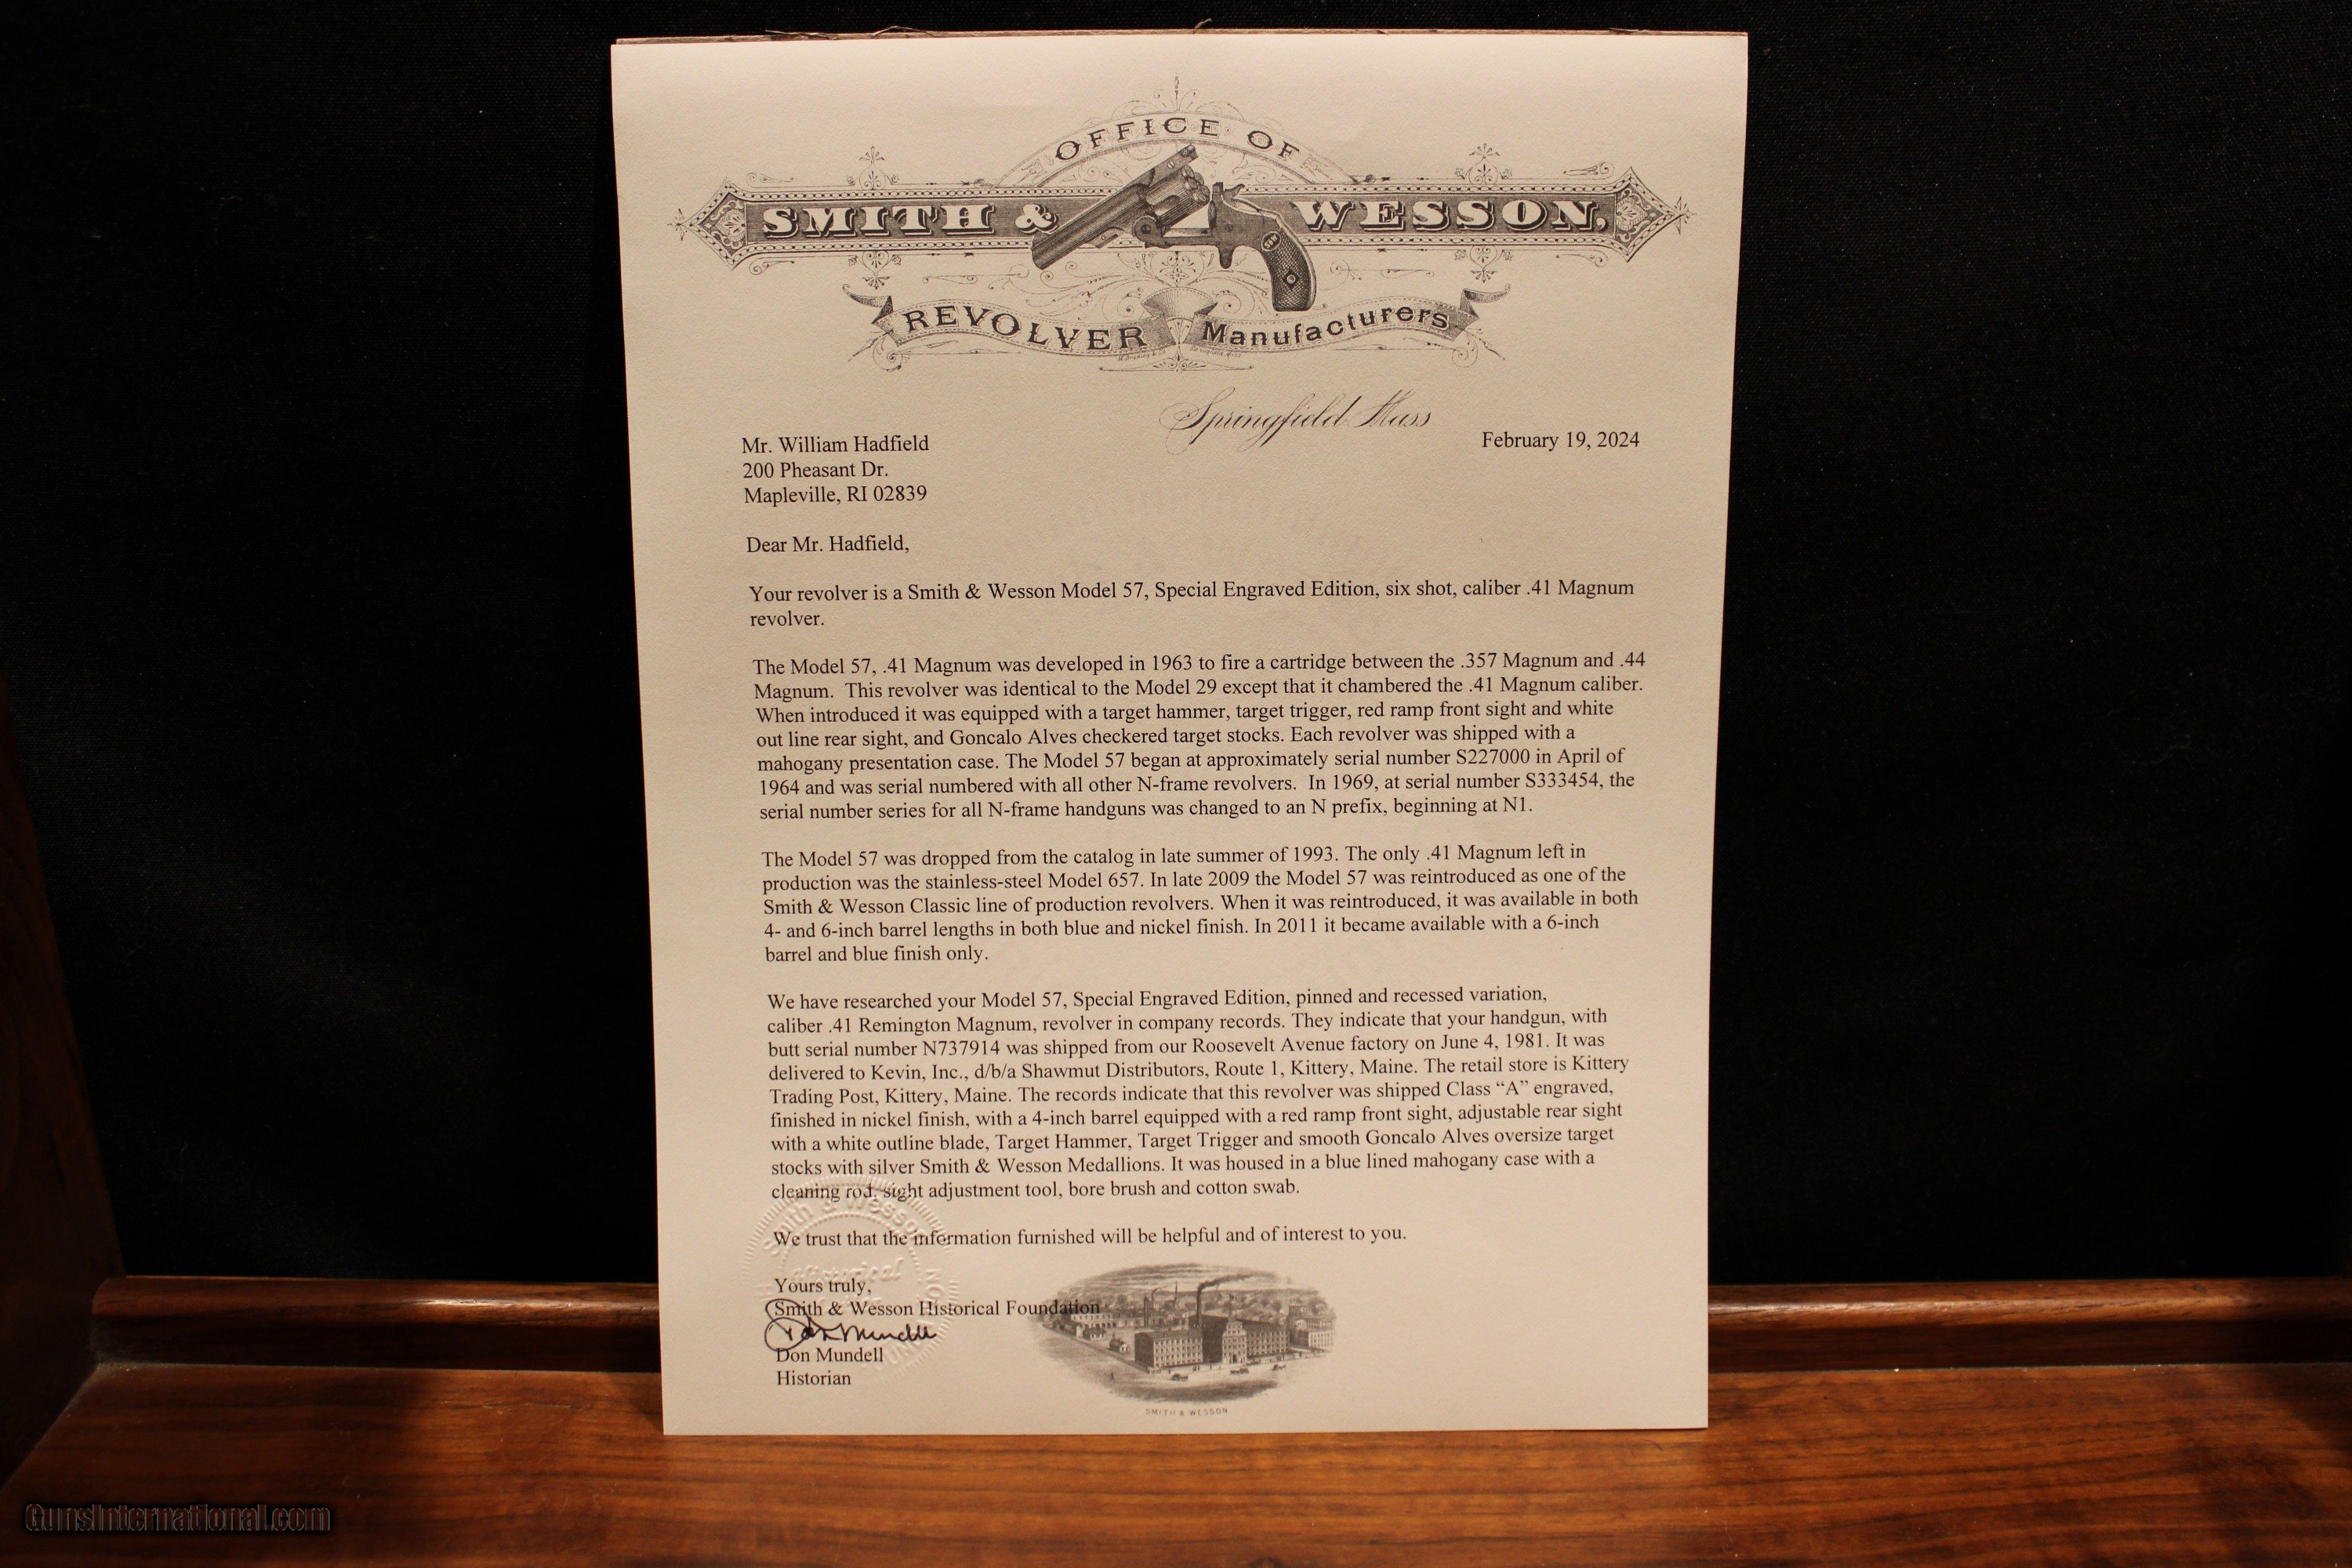 OFFICE OF
SMITH & WESSON,
REVOLVER Manufacturers
Springfield Mass
February 19, 2024
Mr. William Hadfield
200 Pheasant Dr.
Mapleville, RI 02839
Dear Mr. Hadfield,
Your revolver is a Smith & Wesson Model 57, Special Engraved Edition, six shot, caliber .41 Magnum
revolver.
The Model 57, .41 Magnum was developed in 1963 to fire a cartridge between the .357 Magnum and .44
Magnum.  This revolver was identical to the Model 29 except that it chambered the .41 Magnum caliber.
When introduced it was equipped with a target hammer, target trigger, red ramp front sight and white
out line rear sight, and Goncalo Alves checkered target stocks. Each revolver was shipped with a
mahogany presentation case. The Model 57 began at approximately serial number S227000 in April of
1964 and was serial numbered with all other N-frame revolvers.  In 1969, at serial number S333454, the
serial number series for all N-frame handguns was changed to an N prefix, beginning at N1.
The Model 57 was dropped from the catalog in late summer of 1993. The only .41 Magnum left in
production was the stainless-steel Model 657. In late 2009 the Model 57 was reintroduced as one of the
Smith & Wesson Classic line of production revolvers. When it was reintroduced, it was available in both
4- and 6-inch barrel lengths in both blue and nickel finish. In 2011 it became available with a 6-inch
barrel and blue finish only.
We have researched your Model 57, Special Engraved Edition, pinned and recessed variation,
caliber .41 Remington Magnum, revolver in company records. They indicate that your handgun, with
butt serial number N737914 was shipped from our Roosevelt Avenue factory on June 4, 1981. It was
delivered to Kevin, Inc., d/b/a Shawmut Distributors, Route 1, Kittery, Maine. The retail store is Kittery
Trading Post, Kittery, Maine. The records indicate that this revolver was shipped Class “A” engraved,
finished in nickel finish, with a 4-inch barrel equipped with a red ramp front sight, adjustable rear sight
with a white outline blade, Target Hammer, Target Trigger and smooth Goncalo Alves oversize target
stocks with silver Smith & Wesson Medallions. It was housed in a blue lined mahogany case with a
cleaning rod, sight adjustment tool, bore brush and cotton swab.
Smith & Wesson
We trust that the information furnished will be helpful and of interest to you.
Historical
Yours truly,
Smith & Wesson Historical Foundation
Don Mundell
Don Mundell
Historian
SMITH & WESSON
GunsInternational.com